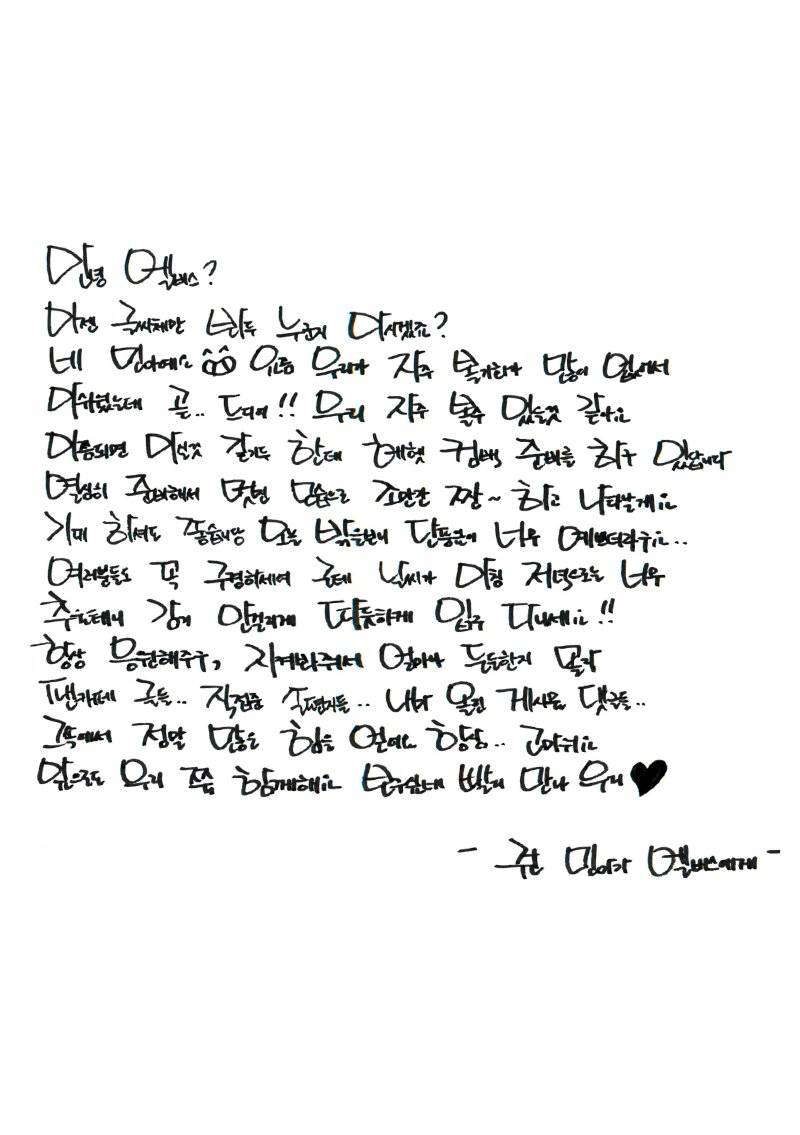 안녕 엘버스?
이젠 글씨체만 봐두 누군지 아시겠죠?
네 민아에요 ^^ 요즘 우리가 자주 볼기회가 많이 없어서
아쉬웠는데 곧.. 드디어!! 우리 자주 볼수 있을것 같아요
이쯤되면 아실것 같기두 한데 헤헷 컴백 준비를 하구 있답니다
열심히 준비해서 멋진 모습으로 조만간 짠~ 하고 나타날게요
기대 하셔도 좋습니당 오늘 밖을보니 단풍들이 너무 예쁘더라구요..
여러분들도 꼭 구경하세여 근데 날씨가 아침 저녁으로는 너무
추울테니 감기 안걸리게 따듯하게 입구 다니세요!!
항상 응원해주구, 지켜봐줘서 얼마나 든든한지 몰라
팬카페 글들.. 직접준 손편지들.. 내가 올린 게시물 댓글들..
그속에서 정말 많은 힘을 얻에요 항상.. 고마워요
앞으로도 우리 쭉 함께해요 보구싶네 빨리 만나 우리♥
- 쿠한 민아가 엘버스에게 -